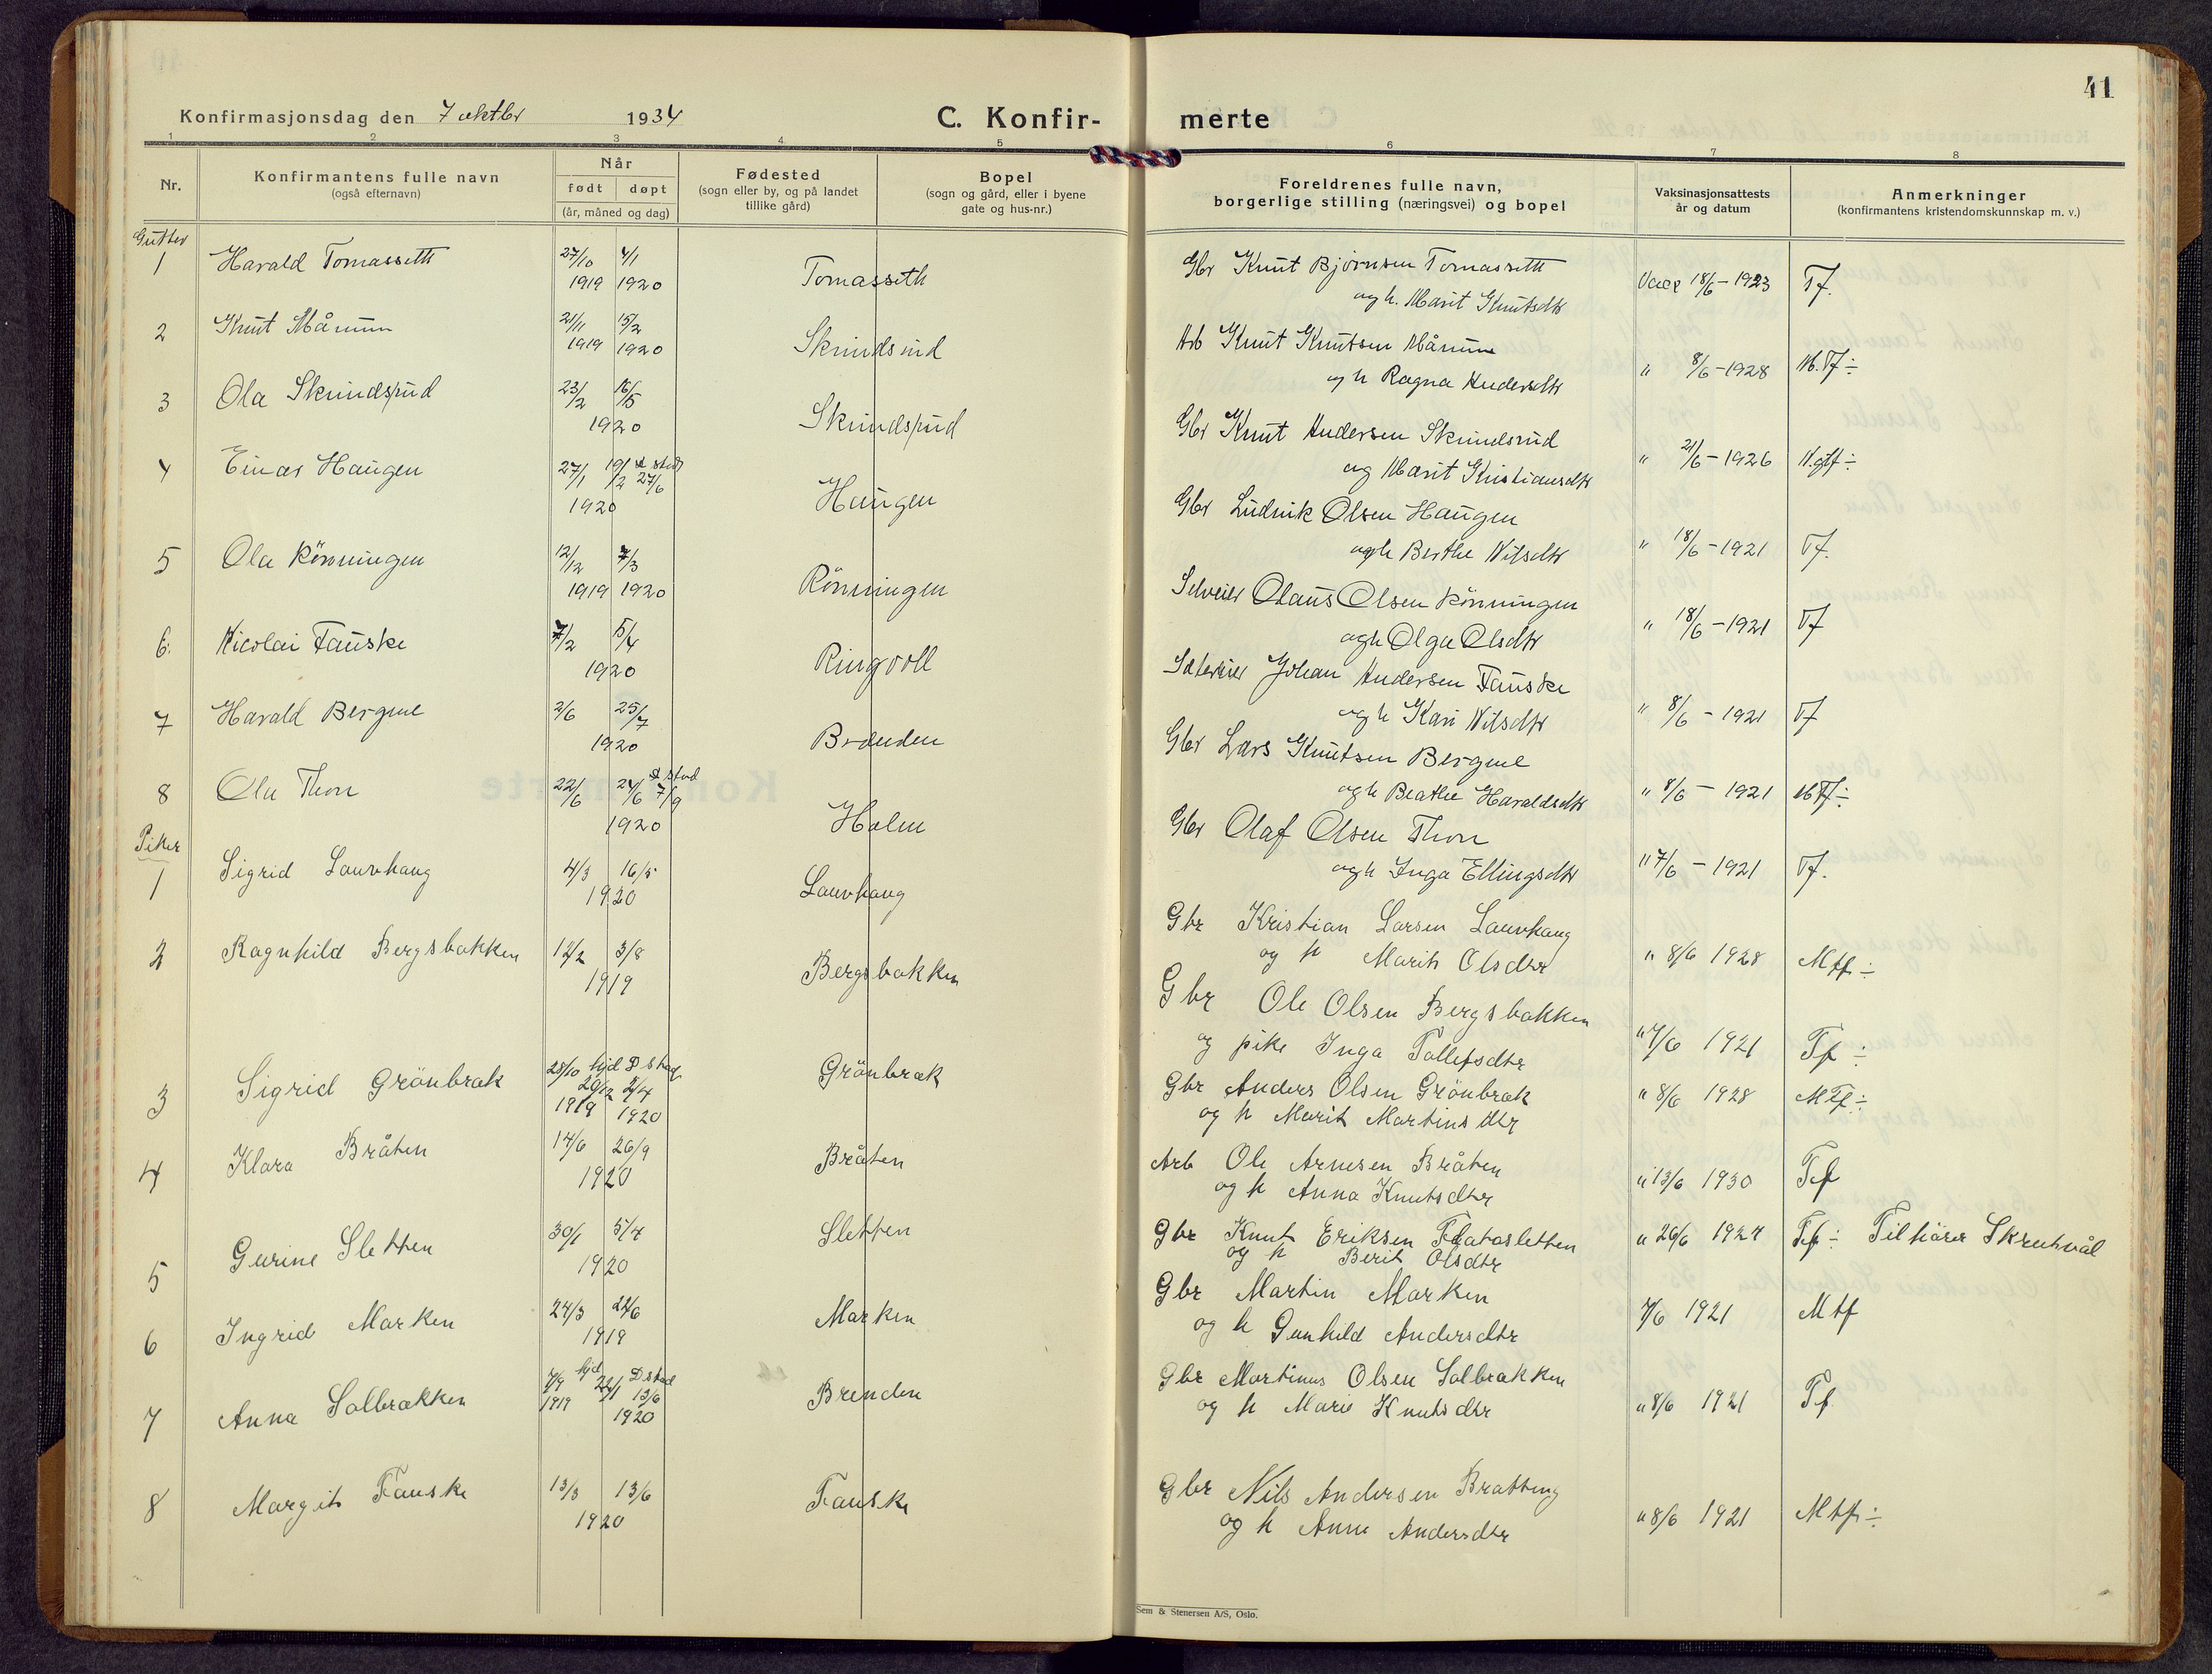 41
Konfirmasjonsdag den 7 oktbr 1934
C. Konfir-merte
1 2 3 4 5 6 7 8
Nr.
Konfirmantens fulle navn
(også efternavn)
Når
født døpt
(år, måned og dag)
Fødested
(sogn eller by, og på landet
tillike gård)
Bopel
(sogn og gård, eller i byene
gate og hus-nr.)
Foreldrenes fulle navn,
borgerlige stilling (næringsvei) og bopel
Vaksinasjonsattests
år og datum
Anmerkninger
(konfirmantens kristendomskunnskap m. v.)
Gutter
1 Harald Tomasseth 27/10 4/1 Tomasseth Gbr Knut Bjørnsen Tomasseth
1919 1920 og h. Marit Knutsdtr Vacc 18/6 - 1923 Tf.
2 Knut Månum 21/11 15/2 Skrindsrud Arb Knut Knutsen Månum
1919 1920 og h Ragna Andersdtr " 8/6 - 1928 M.Tf ÷
3 Ola Skrindsrud 23/2 16/5 Skrindsrud Gbr Knut Andersen Skrindsrud
1920 og Marit Kristiansdtr " 21/6 - 1926 N.gtf ÷
4 Einar Haugen 27/1 19/2 st std 27/6 Haugen Gbr Ludvik Olsen Haugen
1920 og h Berthe Nilsdtr " 18/6 - 1921 Tf.
5 Ola Rönningen 12/12 7/3 Rönningen Selveier Olaus Olsen Rönningen
1919 1920 og h Olga Olsdtr " 18/6 - 1921 Tf
6. Nicolai Fauske 7/2 5/4 Ringvoll Johan Andersen Fauske
1920 og h Kari Nilsdtr " 8/6 - 1921 Tf
7 Harald Bergene 2/6 25/7 Brænden Gbr Lars Knutsen Bergene
1920 og h Beathe Haraldsdtr " 8/6 - 1921 M Tf ÷
8 Ola Thon 22/6 24/6 st stad 7/9 Holm Gbr Olaf Olsen Thon
1920 og h Inga Ellingsdtr " 7/6 - 1921 Tf.
Piker
1 Sigrid Lauvhaug 4/3 16/5 Lauvhaug Gbr Kristian Larsen Lauvhaug
1920 og h Marit Olsdtr " 8/6 1928 Mtf ÷
2 Ragnhild Bergsbakken 12/2 3/8 Bergsbakken Gbr Ole Olsen Bergsbakken
1919 og pike Inga Tollefsdtr " 7/6 1921 Tf ÷
3 Sigrid Grönbræk 28/10 hjd 20/12 D stad 5/4 Grönbræk Gbr Anders Olsen Grönbræk " 8/6 1928 MTf ÷
1919 1920 og h Marit Martinsdtr
4 Klara Bråten 14/6 26/9 Bråten Arb Ole Arnesen Bråten
1920 og h Anna Knutsdtr " 13/6 1930 Tf
5 Gurine Sletten 30/1 5/4 Sletten Gbr Knut Eriksen Flatasletten " 26/6 1924 Tf ÷ Tilhörer Skrutvål
1920 og h Berit Olsdtr
6 Ingrid Marken 24/3 22/6 Marken Gbr Martin Marken
1919 og h Gunhild Andersdtr 7/6 1921 Mtf
7 Anna Solbrækken 7/9 hjd 22/1 D stad 13/6 Brenden Gbr Martinus Olsen Solbrækken
1919 1920 og h Marie Knutsdtr " 8/6 1921 Tf
8 Margit Fauske 13/3 13/6 Fauske Gbr Nils Andersen Bratteng
1920 og h Anne Andersdtr " 8/6 1921 Mtf ÷
Sem & Stenersen A/S, Oslo.